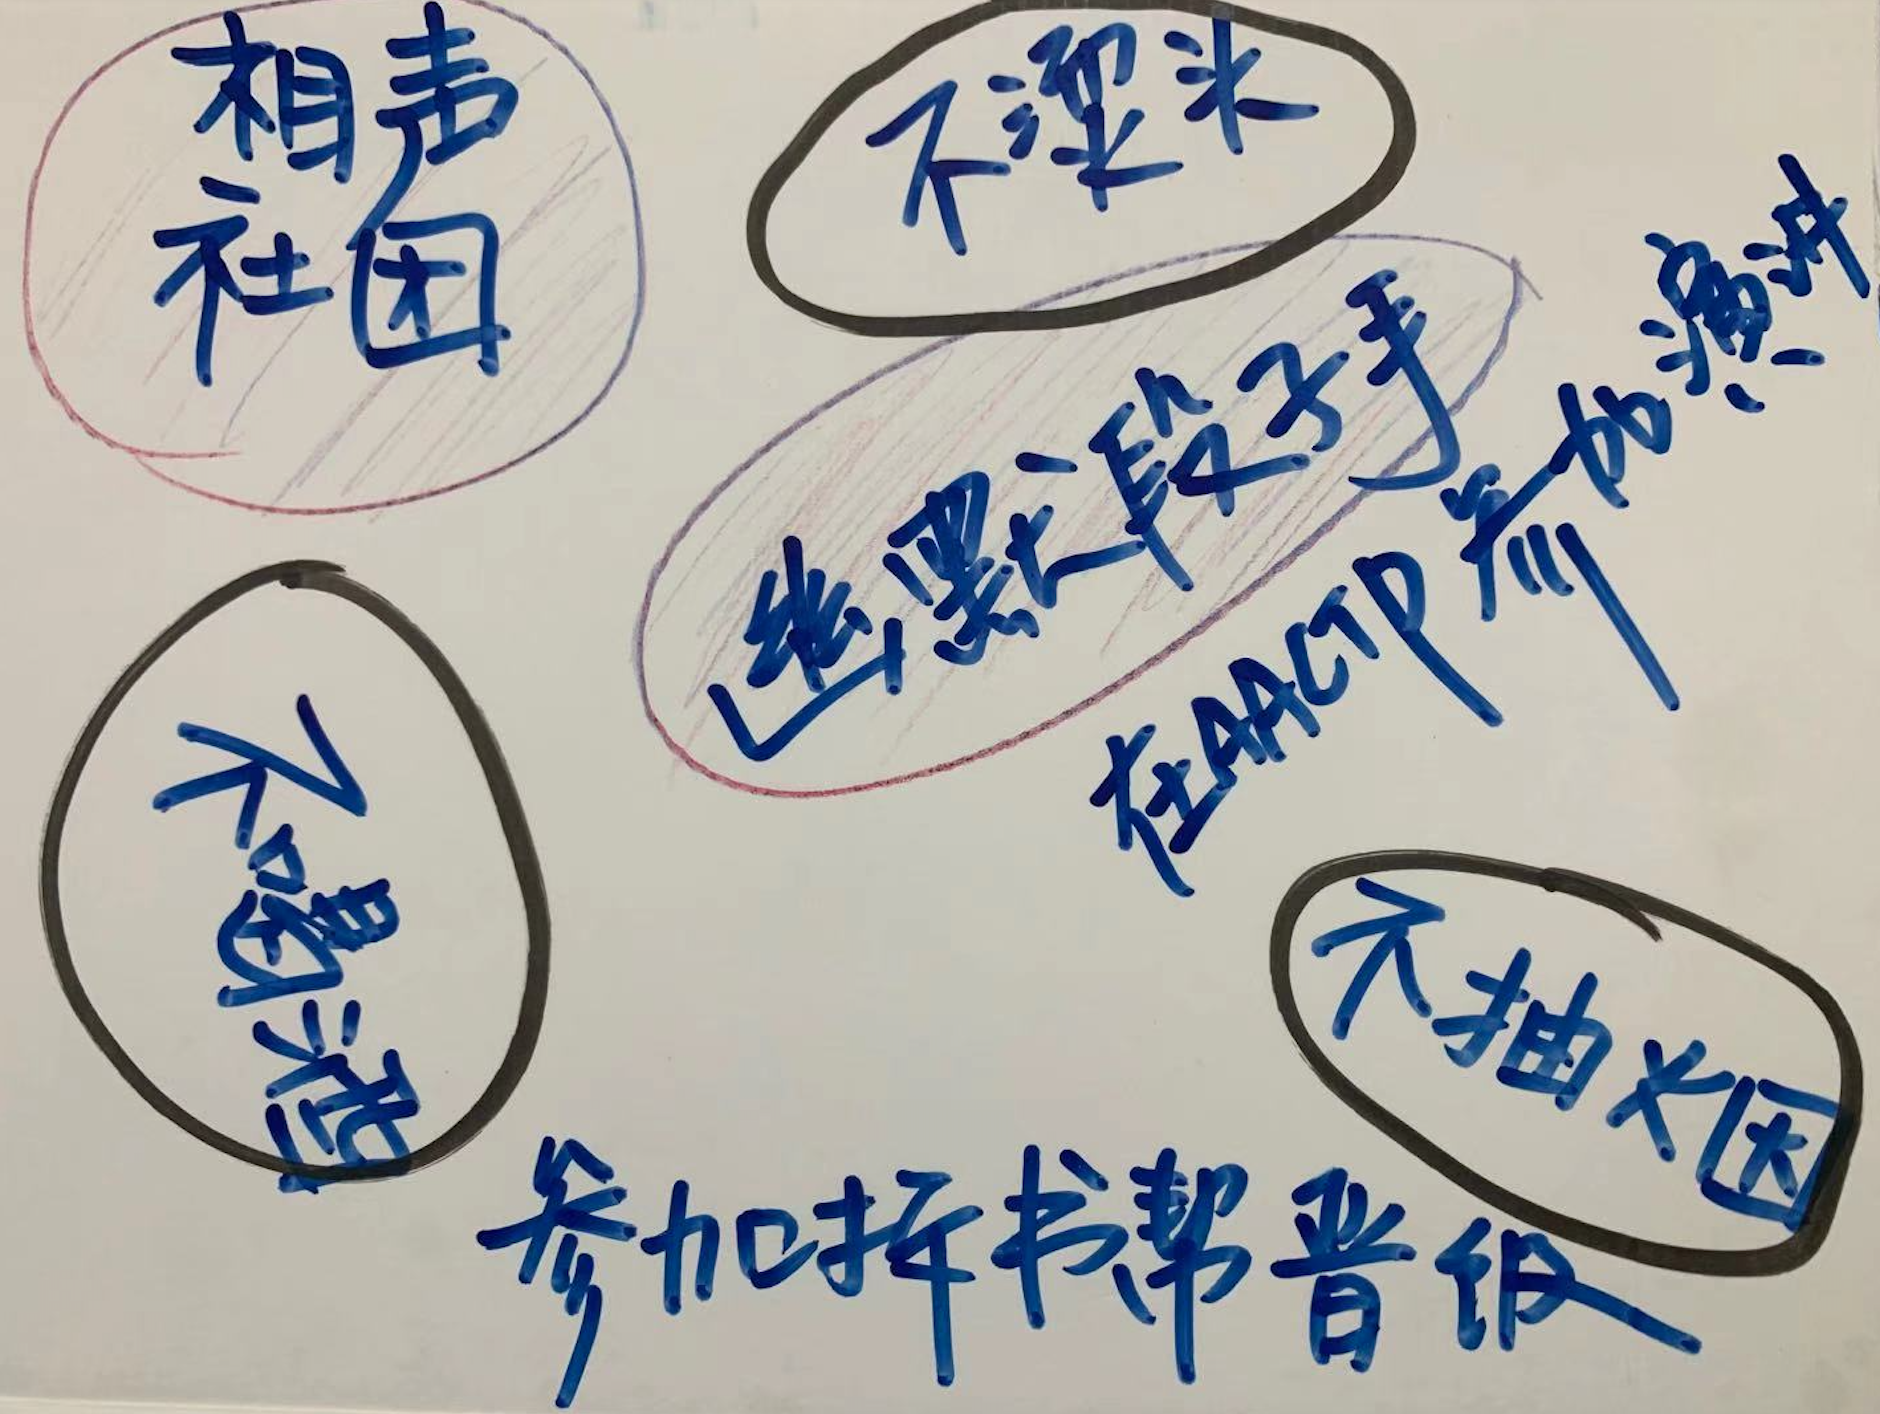 相声
社团
不烫头
幽默段子手
在AACTP参加演讲
不喝酒
不抽烟
参加拆书帮晋级